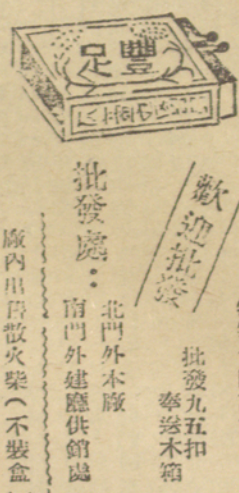 豐足
歡迎批發
批發九五扣
奉送木箱
批發處：
北門外本廠
南門外建廳供銷處
廠內出售散火柴（一不裝盒